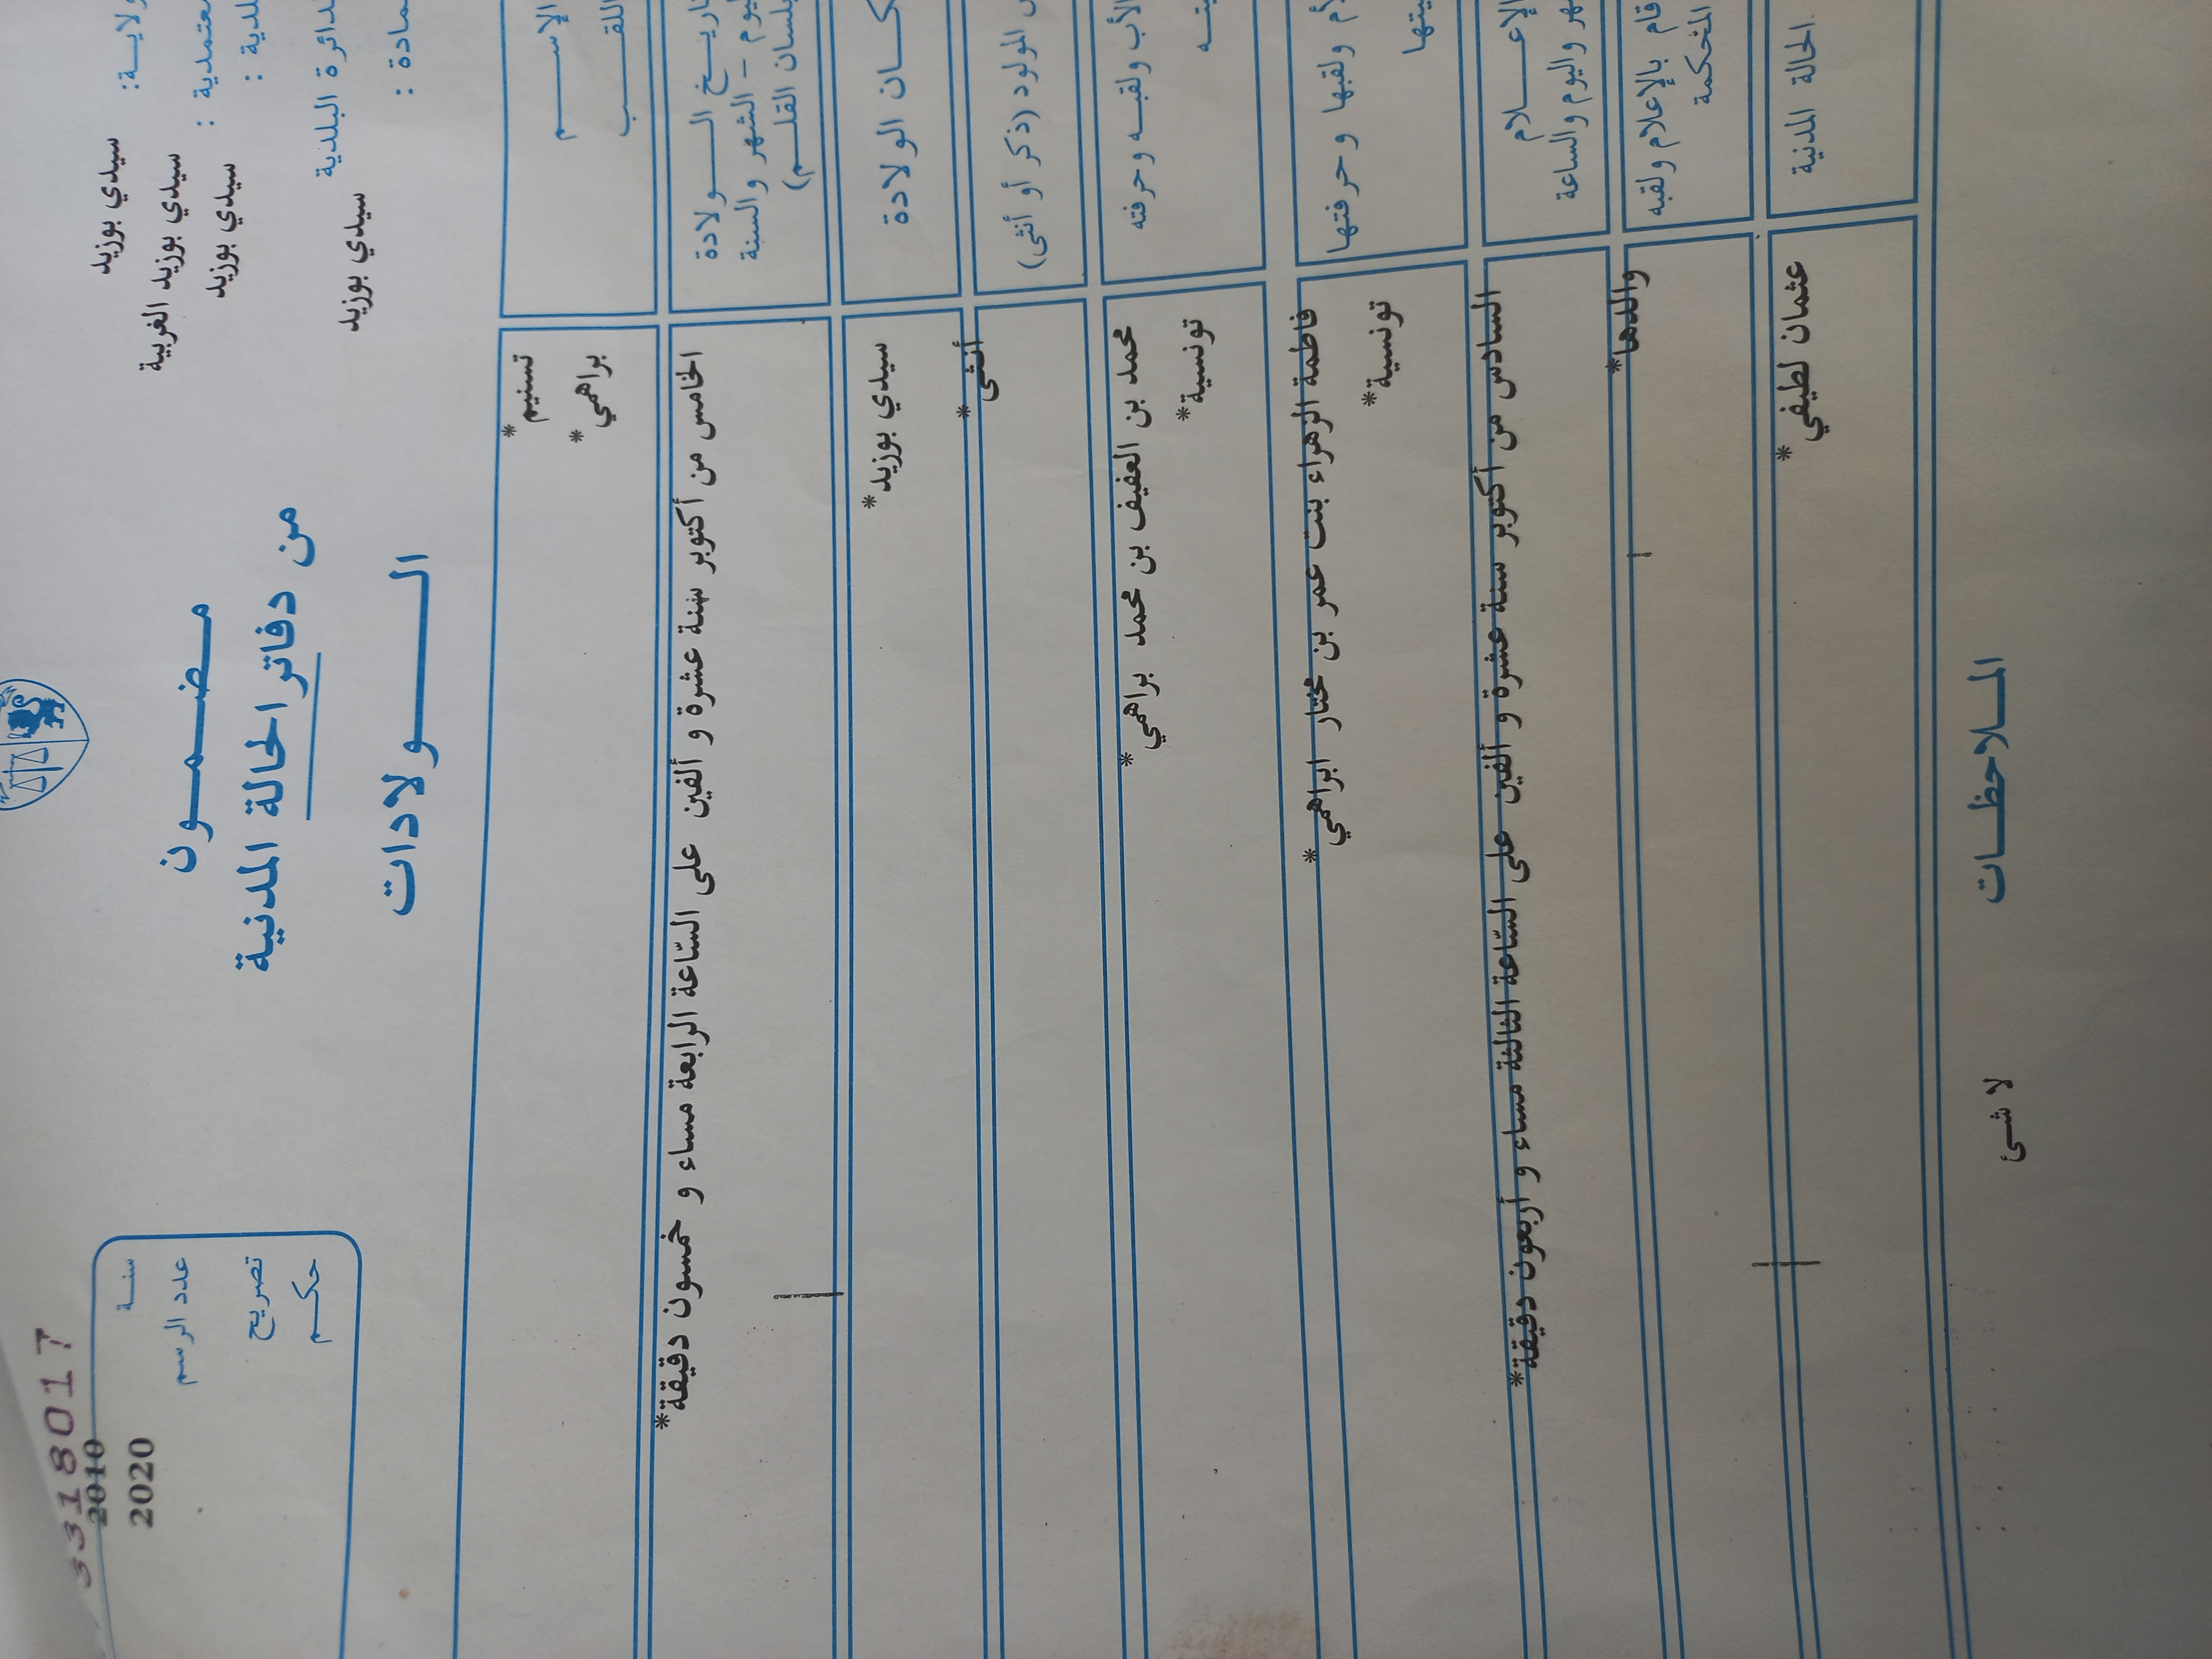 3318017
سنة 2010
عدد الرسم 2020
تصريح
حكم
سيدي بوزيد
سيدي بوزيد الغربية
سيدي بوزيد
الدائرة البلدية
سيدي بوزيد
مضمون
من دفاتر الحالة المدنية
الولادات
الاسم تسنيم *
اللقب براهمي *
الولادة الخامس من أكتوبر سنة عشرة و ألفين على السّاعة الرابعة مساء و خمسون دقيقة *
اليوم - الشهر والسنة
بلسان القلم)
مكان الولادة سيدي بوزيد *
المولود (ذكر أو أنثى) أنثى *
الأب ولقبه وحرفته محمد بن العفيف بن محمد براهمي *
تونسية *
الأم ولقبها وحرفتها فاطمة الزهراء بنت عمر بن مختار ابراهمي *
تونسية *
الإعلام السادس من أكتوبر سنة عشرة و ألفين على السّاعة الثالثة مساء و أربعون دقيقة *
واليوم والساعة
قام بالإعلام ولقبه والدها *
المحكمة
الحالة المدنية عثمان لطيفي *
الملاحظات
لا شئ